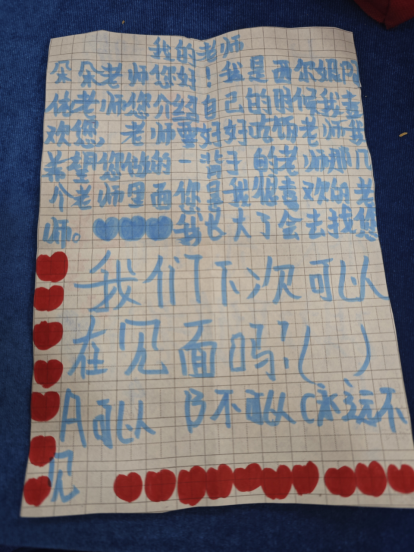 我的老师
朵朵老师您好！我是西尔姆
老师您介绍自己的时候我喜
欢您 老师要好好吃饭老师我
希望您 一辈子的老师那几
个老师里面您是我很喜欢的老
师。我长大了会去找您
我们下次可以
在见面吗!( )
A可以 B不可以 C永远不
见